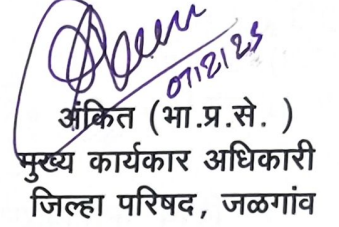 07/2/25
अंकित (भा.प्र.से. )
मुख्य कार्यकार अधिकारी
जिल्हा परिषद, जळगांव